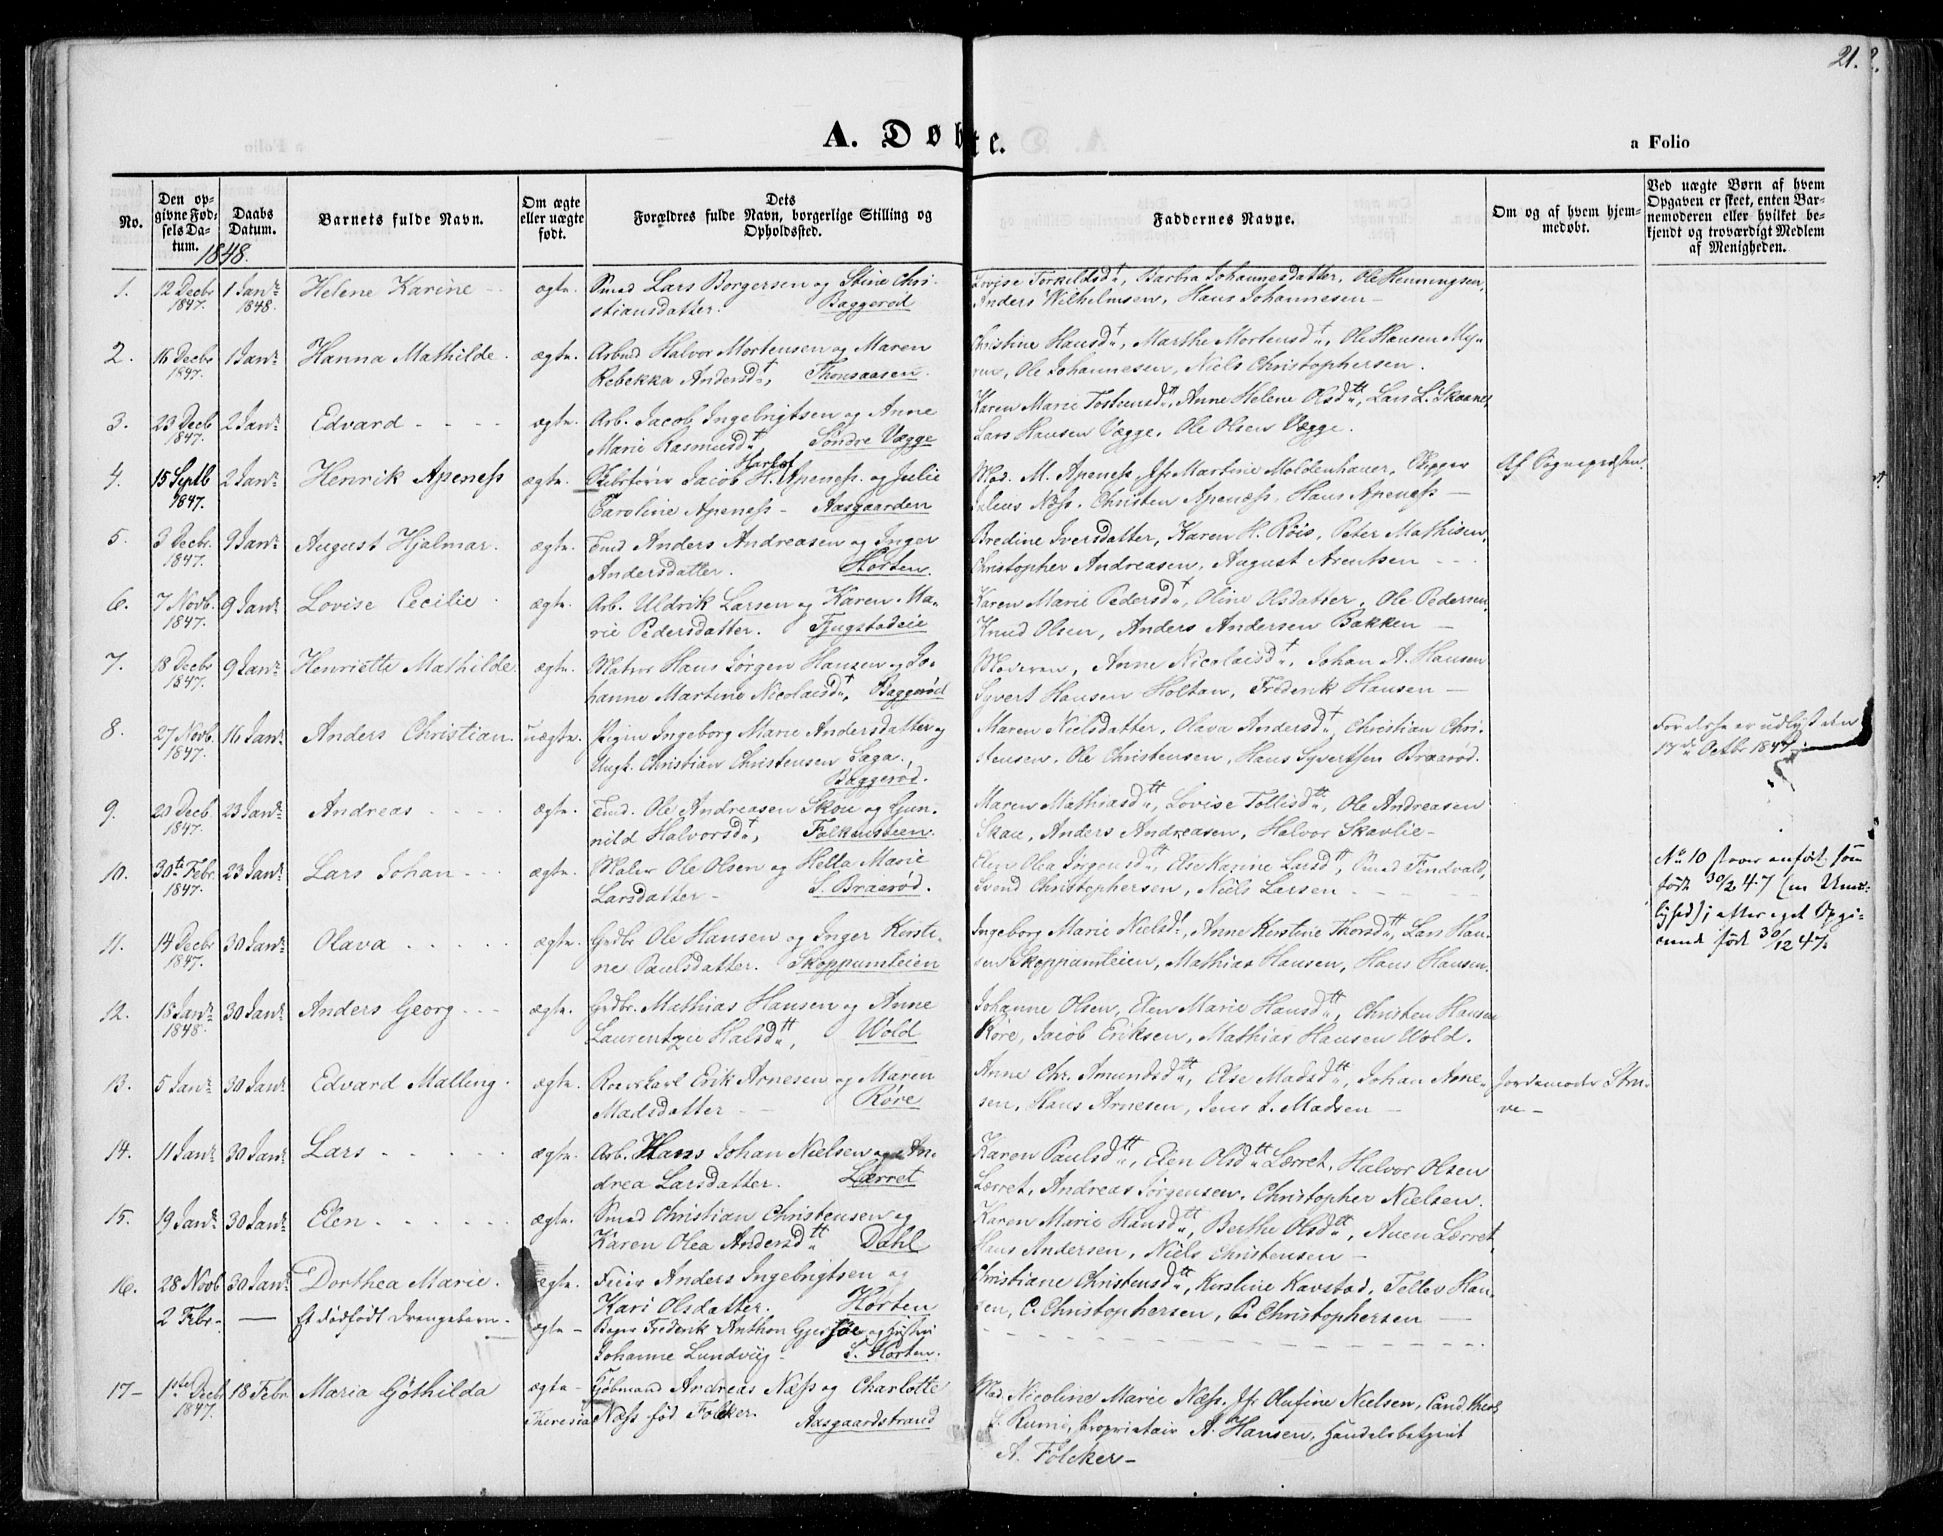 21.
A. Døbte.
a Folio
No.
Den opgivne Fødselsdatum.
Daabs Datum.
Barnets fulde Navn.
Om ægte eller uægte født.
Dets Forældres fulde Navn, borgerlige Stilling og Opholdssted.
Faddernes Navne.
Om og af hvem hjemmedøbt.
Ved uægte Børn af hvem Opgaven er skeet, enten Barnemoderen eller hvilket bekjendt og troværdigt Medlem af Menigheden.
1848.
1. 12 Decbr 1847. 1 Janr 1848. Helene Karine ægte. Smed Lars Borgersen og Stine Chri- Lovise Torkildsdr, Barbra Johannesdatter, Ole Henningsen,
stiansdatter. Baggerød Anders Wilhelmsen, Hans Johannesen –
2. 16 Decbr 1847. 1 Janr Hanna Mathilde. ægte. Arbmd Halvor Mortensen og Maren Christine Hansdt, Marthe Mortensdt, Ole Hansen Mej-
Rebekka Andersdt, Thonsaasen. ren, Ole Johannesen, Niels Christophersen.
3. 23 Decb 1847. 2 Janr Edvard ægte. Arb. Jacob Ingebrigtsen og Anne Karen Marie Tostensdtt, Anne Helene Olsdtt, Lars L. Skaanes,
Marie Rasmusdt Søndre Vægge Lars Hansen Vægge, Ole Olsen Vægge.
4. 15 Septb 1847. 2 Janr Henrik Apeness ægte. Skibsfører Jacob H. Apeness. og Julie Mad. M. Apeness, Jfr Martine Moldenhauer, Skipper Af Sognepresten.
Caroline Apeness – Aasgaarden Julius Næss, Christen Apenæss, Hans Apeness –
5. 3 Decbr. 1847. 9 Janr August Hjalmar. ægte. Tmd Anders Andreasen og Inger Bredine Iversdatter, Karen H. Röis, Peter Mathisen,
Andersdatter. Horten. Christopher Andreasen, August Arentsen
6. 7 Novb. 1847. 9 Janr Lovise Cecilie ægte. Arb. Uldrik Larsen og Karen Ma- Karen Marie Pedersdt, Oline Olsdatter, Ole Pedersen,
rie Pedersdatter. Fjugstadeie Knud Olsen, Anders Andersen Bakken –
7. 18 Decbr 1847. 9 Janr Henriette Mathilde ægte. Matros Hans Jörgen Hansen og Jo- Moderen, Anne Nicolaisdt, Johan A. Hansen
hanne Martine Nicolaisdt, Baggerød Syvert Hansen Holtan, Frederik Hansen –
8. 27 Novb. 1847. 16 Janr Anders Christian. uægte. Pigen Ingeborg Marie Andersdatter og Maren Nielsdatter, Olava Andersdt, Christian Chri- For desse er udlyst den
Ungk. Christian Christensen Saga, stensen, Ole Christensen, Hans Syvertsen Braarød. 17de Octb. 1847.
Baggerød.
9. 20 Decb 1847. 23 Janr Andreas ægte. Tmd. Ole Andreasen Skou og Gun- Maren Mathiasdtt, Lovise Tollisdtt, Ole Andreasen
nild Halvorsdt, Falkensteen. Skau, Anders Andreasen, Halvor Skavlie –
10. 30te Febr. 1847. 23 Janr Lars Johan ægte. Maler Ole Olsen og Hella Marie Elen Olea Jörgensdtt, Else Karine Larsdtt, Omed Tindvald, No 10 staaer anført som
Larsdatter – S. Braarød. Svend Christophersen, Niels Larsen – født 30/2 47 (en Umu-
lighed); efter eget Opgi-
vende født 30/12 47.
11. 14 Decbr 1847. 30 Janr Olava ægte. Grdbr Ole Hansen og Inger Kirsti- Ingeborg Marie Nielsdt, Anne Kirstine Thorsdtt, Lars Han-
ne Paulsdatter. Skoppumteien sen Skoppumteien, Mathias Hansen, Hans Hansen.
12. 18 Janr 1848. 30 Janr Anders Georg ægte. Grdbr. Mathias Hansen og Anne Johanne Olsen, Elen Marie Hansdtt, Christen Hansen
Laurentzie Halsdtt, Wold Röre, Jacob Eriksen, Mathias Hansen Wold.
13. 5 Janr 30 Janr Edvard Malling. ægte. Roerskarl Erik Arnesen og Maren Anne Chr. Amundsdtt, Else Madsdtt, Johan Arne- Jordemoder Stru-
Madsdatter – Röre sen, Hans Arnesen, Jens L. Madsen – ve –
14. 11 Janr 30 Janr Lars ægte. Arb. Hans Johan Nielsen og An- Karen Paulsdtt, Elen Olsdtt Lærret, Halvor Olsen
drea Larsdatter. Lærret Lærret, Andreas Jörgensen, Christopher Nielsen.
15. 19 Janr 30 Janr Elen ægte. Smed Christian Christensen og Karen Marie Hansdtt, Berthe Olsdtt, Auen Lærret,
Karen Olea Andersdtt Dahl Hans Andersen, Niels Christensen –
16. 28 Novb 30 Janr Dorthea Marie. ægte. Feier Anders Ingebrigtsen og Christiane Christensdtt, Kirstine Kavstad, Tellev Han-
Kari Olsdatter. Horten sen, C. Christophersen, P. Christophersen –
2 Febr. – Et dødfødt Drengebarn – ægte – Bager Frederik Anthon Gjersøe og Hustru
Johanne Lundvig – S. Horten.
17 – 1ste Decb 1847. 18 Febr Maria Göthilda Theresia ægte – Kjøbmand Andreas Næss og Charlotte Mad. Nicoline Marie Næss, Jfr Olufine Nielsen, Cand. theol.
Næss fød Følcker. Aasgaardstrand Proprietair A. Hansen, Handelsbetjent
A. Følcker –